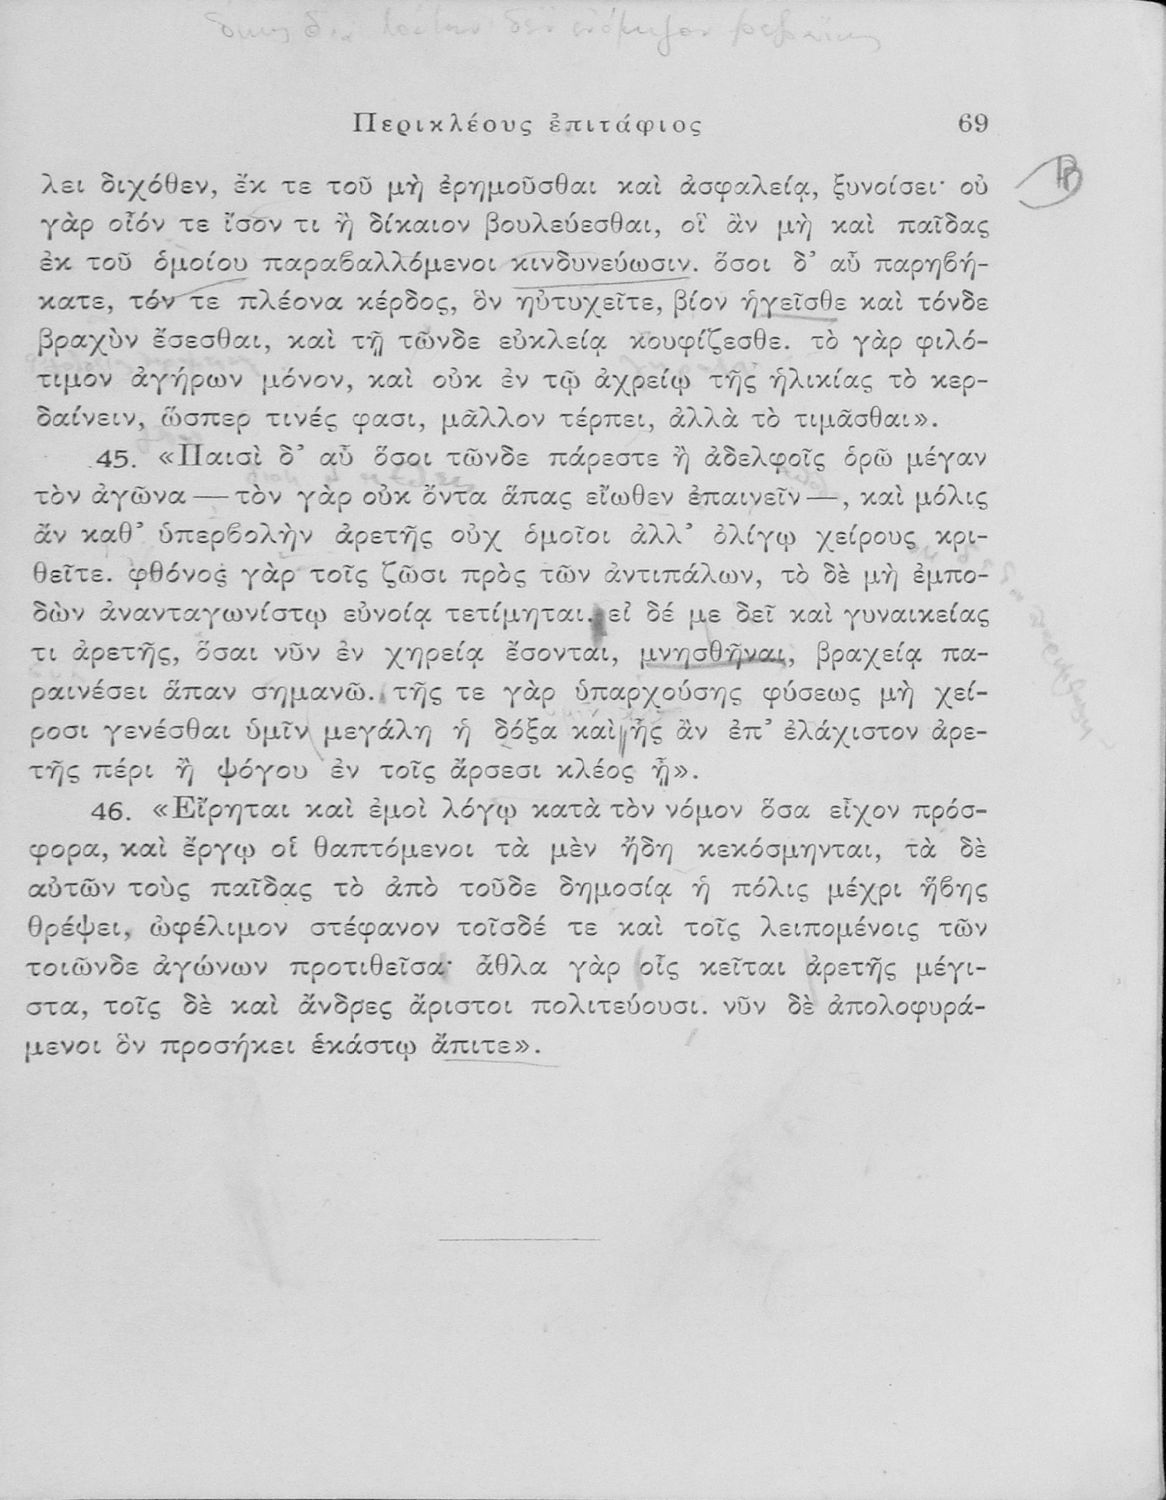 Περικλέους ἐπιτάφιος 69
λει διχόθεν, ἔκ τε τοῦ μὴ ἐρημοῦσθαι καὶ ἀσφαλείᾳ, ξυνοίσει· οὐ
γὰρ οἷόν τε ἴσον τι ἢ δίκαιον βουλεύεσθαι, οἳ ἂν μὴ καὶ παῖδας
ἐκ τοῦ ὁμοίου παραβαλλόμενοι κινδυνεύωσιν. ὅσοι δ’ αὖ παρηβή-
κατε, τόν τε πλέονα κέρδος, ὃν ηὐτυχεῖτε, βίον ἡγεῖσθε καὶ τόνδε
βραχὺν ἔσεσθαι, καὶ τῇ τῶνδε εὐκλείᾳ κουφίζεσθε. τὸ γὰρ φιλό-
τιμον ἀγήρων μόνον, καὶ οὐκ ἐν τῷ ἀχρείῳ τῆς ἡλικίας τὸ κερ-
δαίνειν, ὥσπερ τινές φασι, μᾶλλον τέρπει, ἀλλὰ τὸ τιμᾶσθαι».
45. «Παισὶ δ’ αὖ ὅσοι τῶνδε πάρεστε ἢ ἀδελφοῖς ὁρῶ μέγαν
τὸν ἀγῶνα — τὸν γὰρ οὐκ ὄντα ἅπας εἴωθεν ἐπαινεῖν —, καὶ μόλις
ἄν καθ’ ὑπερβολὴν ἀρετῆς οὐχ ὁμοῖοι ἀλλ’ ὀλίγῳ χείρους κρι-
θεῖτε. φθόνος γὰρ τοῖς ζῶσι πρὸς τῶν ἀντιπάλων, τὸ δὲ μὴ ἐμπο-
δὼν ἀνανταγωνίστῳ εὐνοίᾳ τετίμηται. εἰ δέ με δεῖ καὶ γυναικείας
τι ἀρετῆς, ὅσαι νῦν ἐν χηρείᾳ ἔσονται, μνησθῆναι, βραχείᾳ πα-
ραινέσει ἅπαν σημανῶ. τῆς τε γὰρ ὑπαρχούσης φύσεως μὴ χεί-
ροσι γενέσθαι ὑμῖν μεγάλη ἡ δόξα καὶ ἧς ἂν ἐπ’ ἐλάχιστον ἀρε-
τῆς πέρι ἢ ψόγου ἐν τοῖς ἄρσεσι κλέος ᾖ».
46. «Εἴρηται καὶ ἐμοὶ λόγῳ κατὰ τὸν νόμον ὅσα εἶχον πρόσ-
φορα, καὶ ἔργῳ οἱ θαπτόμενοι τὰ μὲν ἤδη κεκόσμηνται, τὰ δὲ
αὐτῶν τοὺς παῖδας τὸ ἀπὸ τοῦδε δημοσίᾳ ἡ πόλις μέχρι ἥβης
θρέψει, ὠφέλιμον στέφανον τοῖσδέ τε καὶ τοῖς λειπομένοις τῶν
τοιῶνδε ἀγώνων προτιθεῖσα· ἆθλα γὰρ οἷς κεῖται ἀρετῆς μέγι-
στα, τοῖς δὲ καὶ ἄνδρες ἄριστοι πολιτεύουσι. νῦν δὲ ἀπολοφυρά-
μενοι ὃν προσήκει ἑκάστῳ ἄπιτε».